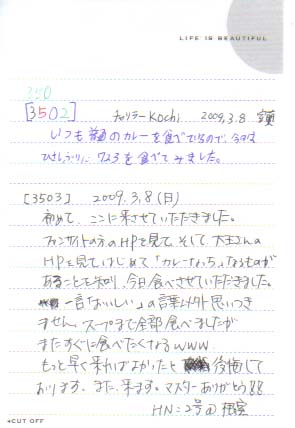 LIFE IS BEAUTIFUL
350
[3502] チャリラー Kochi 2009.3.8
いつも のカレーを食べているので、今日は
ひさしぶりに を食べてみました。
[3503] 2009.3.8(日)
初めて、ここに来させていただきました。
ファンサイトの方のHPを見て、そして、大王さんの
HPを見て、はじめて「カレーなっち」なるものが
あることを知り、今日食べさせていただきました。
一言「おいしい」の言葉以外思いつき
ません。スープまで全部食べましたが
またすぐに食べたくなるwww
もっと早く来ればよかったと 後悔して
おります。また、来ます。マスターありがとう88
HN:2号@
◂CUT OFF